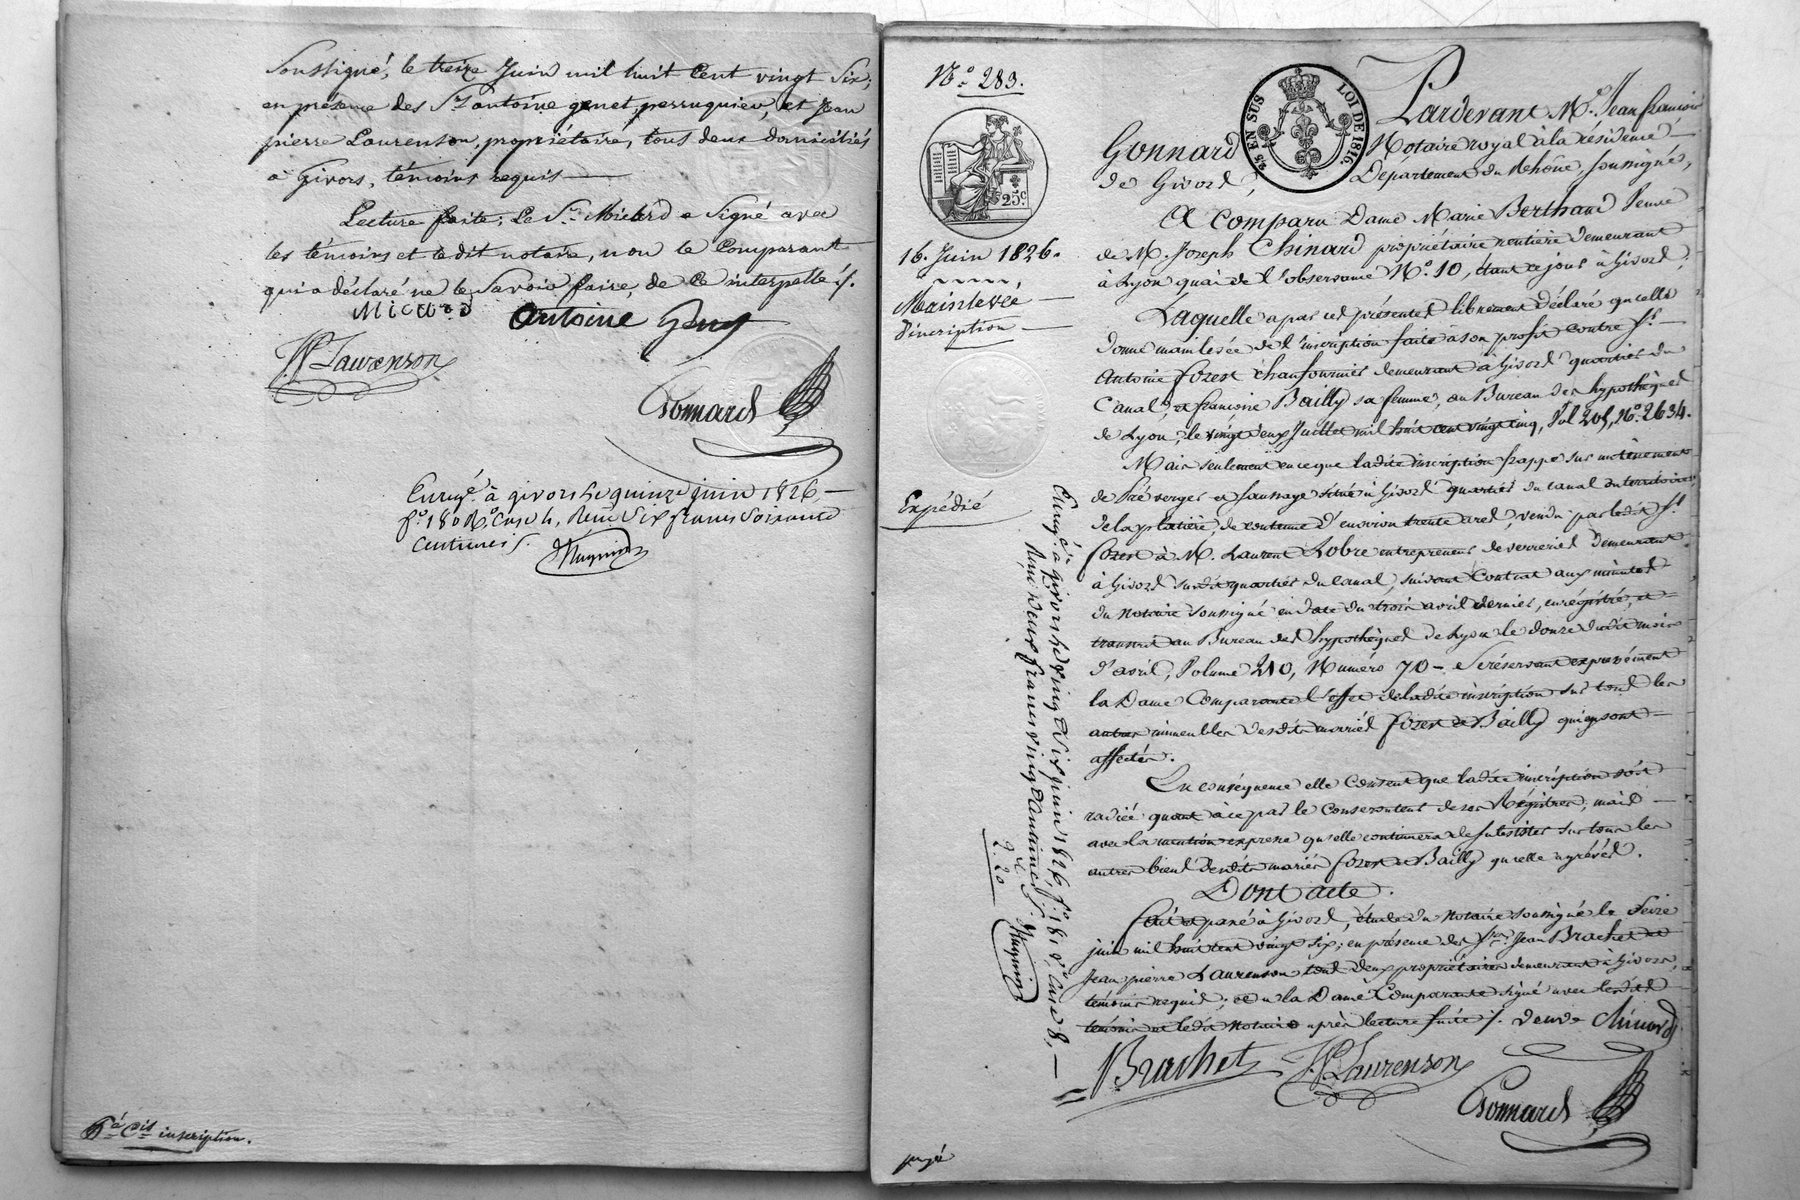 Soussigné, le treize Juin mil huit Cent vingt Six;
en présence des Srs antoine genet perruquier, et Jean
pierre Laurenson, propriétaire, tous deux domiciliés
à Givors, témoins requis —
Lecture faite; Le Sr. Micard a Signé avec
les témoins et ledit notaire, non le Comparant
qui a déclaré ne le Savoir faire, de Ce interpellé /.
Micard Antoine Genet
JP Laurenson
Gonnard
Enregé. à givors le quinze juin 1826 —
fo. 180 Ro. Case 4, Reçu Six francs Soixante
Centimes /.
5ª Cis inscription.
No. 283.
25 EN SUS LOI DE 1816.
25c
16. Juin 1826.
Mainlevée —
d'inscription —
Expédié
Pardevant Me. Jean françois
Gonnard Notaire royal à la résidence
de Givors, Département du Rhône, soussigné,
A Comparu Dame Marie Berthaud Veuve
de M. Joseph Chinard propriétaire rentière demeurant
à Lyon quai de l'observance No. 10, étant ce jour à Givors,
Laquelle a par ces présentes librement déclaré qu'elle
donne mainlevée de l'inscription faite à son profit contre Sr.
Antoine forest chaufournier demeurant à Givors quartier du
Canal, et françoise Bailly sa femme, au Bureau des hypothèques
de Lyon, le vingt deux Juillet mil huit cent vingt cinq, Vol. 205, No. 2634.
Mais seulement en ce que ladite inscription frappe sur un tènement
de Pré verger et sauzaye situé à Givors quartier du canal au territoire
de la platière, de contenue d'environ trente ares, vendu par ledit Sr.
forest à M. Laurent Lobre entrepreneur de verreries demeurant
à Givors susdit quartier du Canal, suivant Contrat aux minutes
du notaire soussigné en date du trois avril dernier, enrégistré, et
transcrit au Bureau des hypothèques de Lyon le douze dudit mois
d'avril, Volume 210, Numéro 70 — Se réservant expressément
la Dame Comparante l'effet de ladite inscription sur tous les
autres immeubles desdits mariés forest et Bailly qui y sont
affectés.
En conséquence elle Consent que ladite inscription soit
radiée quant à ce par le Conservateur de ses Régistres, mais
avec la mention expresse qu'elle continuera de subsister sur tous les
autres biens desdits mariés forest et Bailly qu'elle a grévés.
Dont acte.
fait et passé à Givors, étude du notaire soussigné le Seize
juin mil huit cent vingt six; en présence des Srs. Jean Brachet et
Jean pierre Laurenson tous deux propriétaires demeurant à Givors,
témoins requis; et a la Dame Comparante signé avec lesdits
témoins et ledit notaire après lecture faite /. veuve Chinard
Brachet JP Laurenson
Gonnard
Enregé. à givors le vingt Six juin 1826, fo. 181 Vo. Case 8, —
Reçu deux francs vingt Centimes /.
2 20
payé